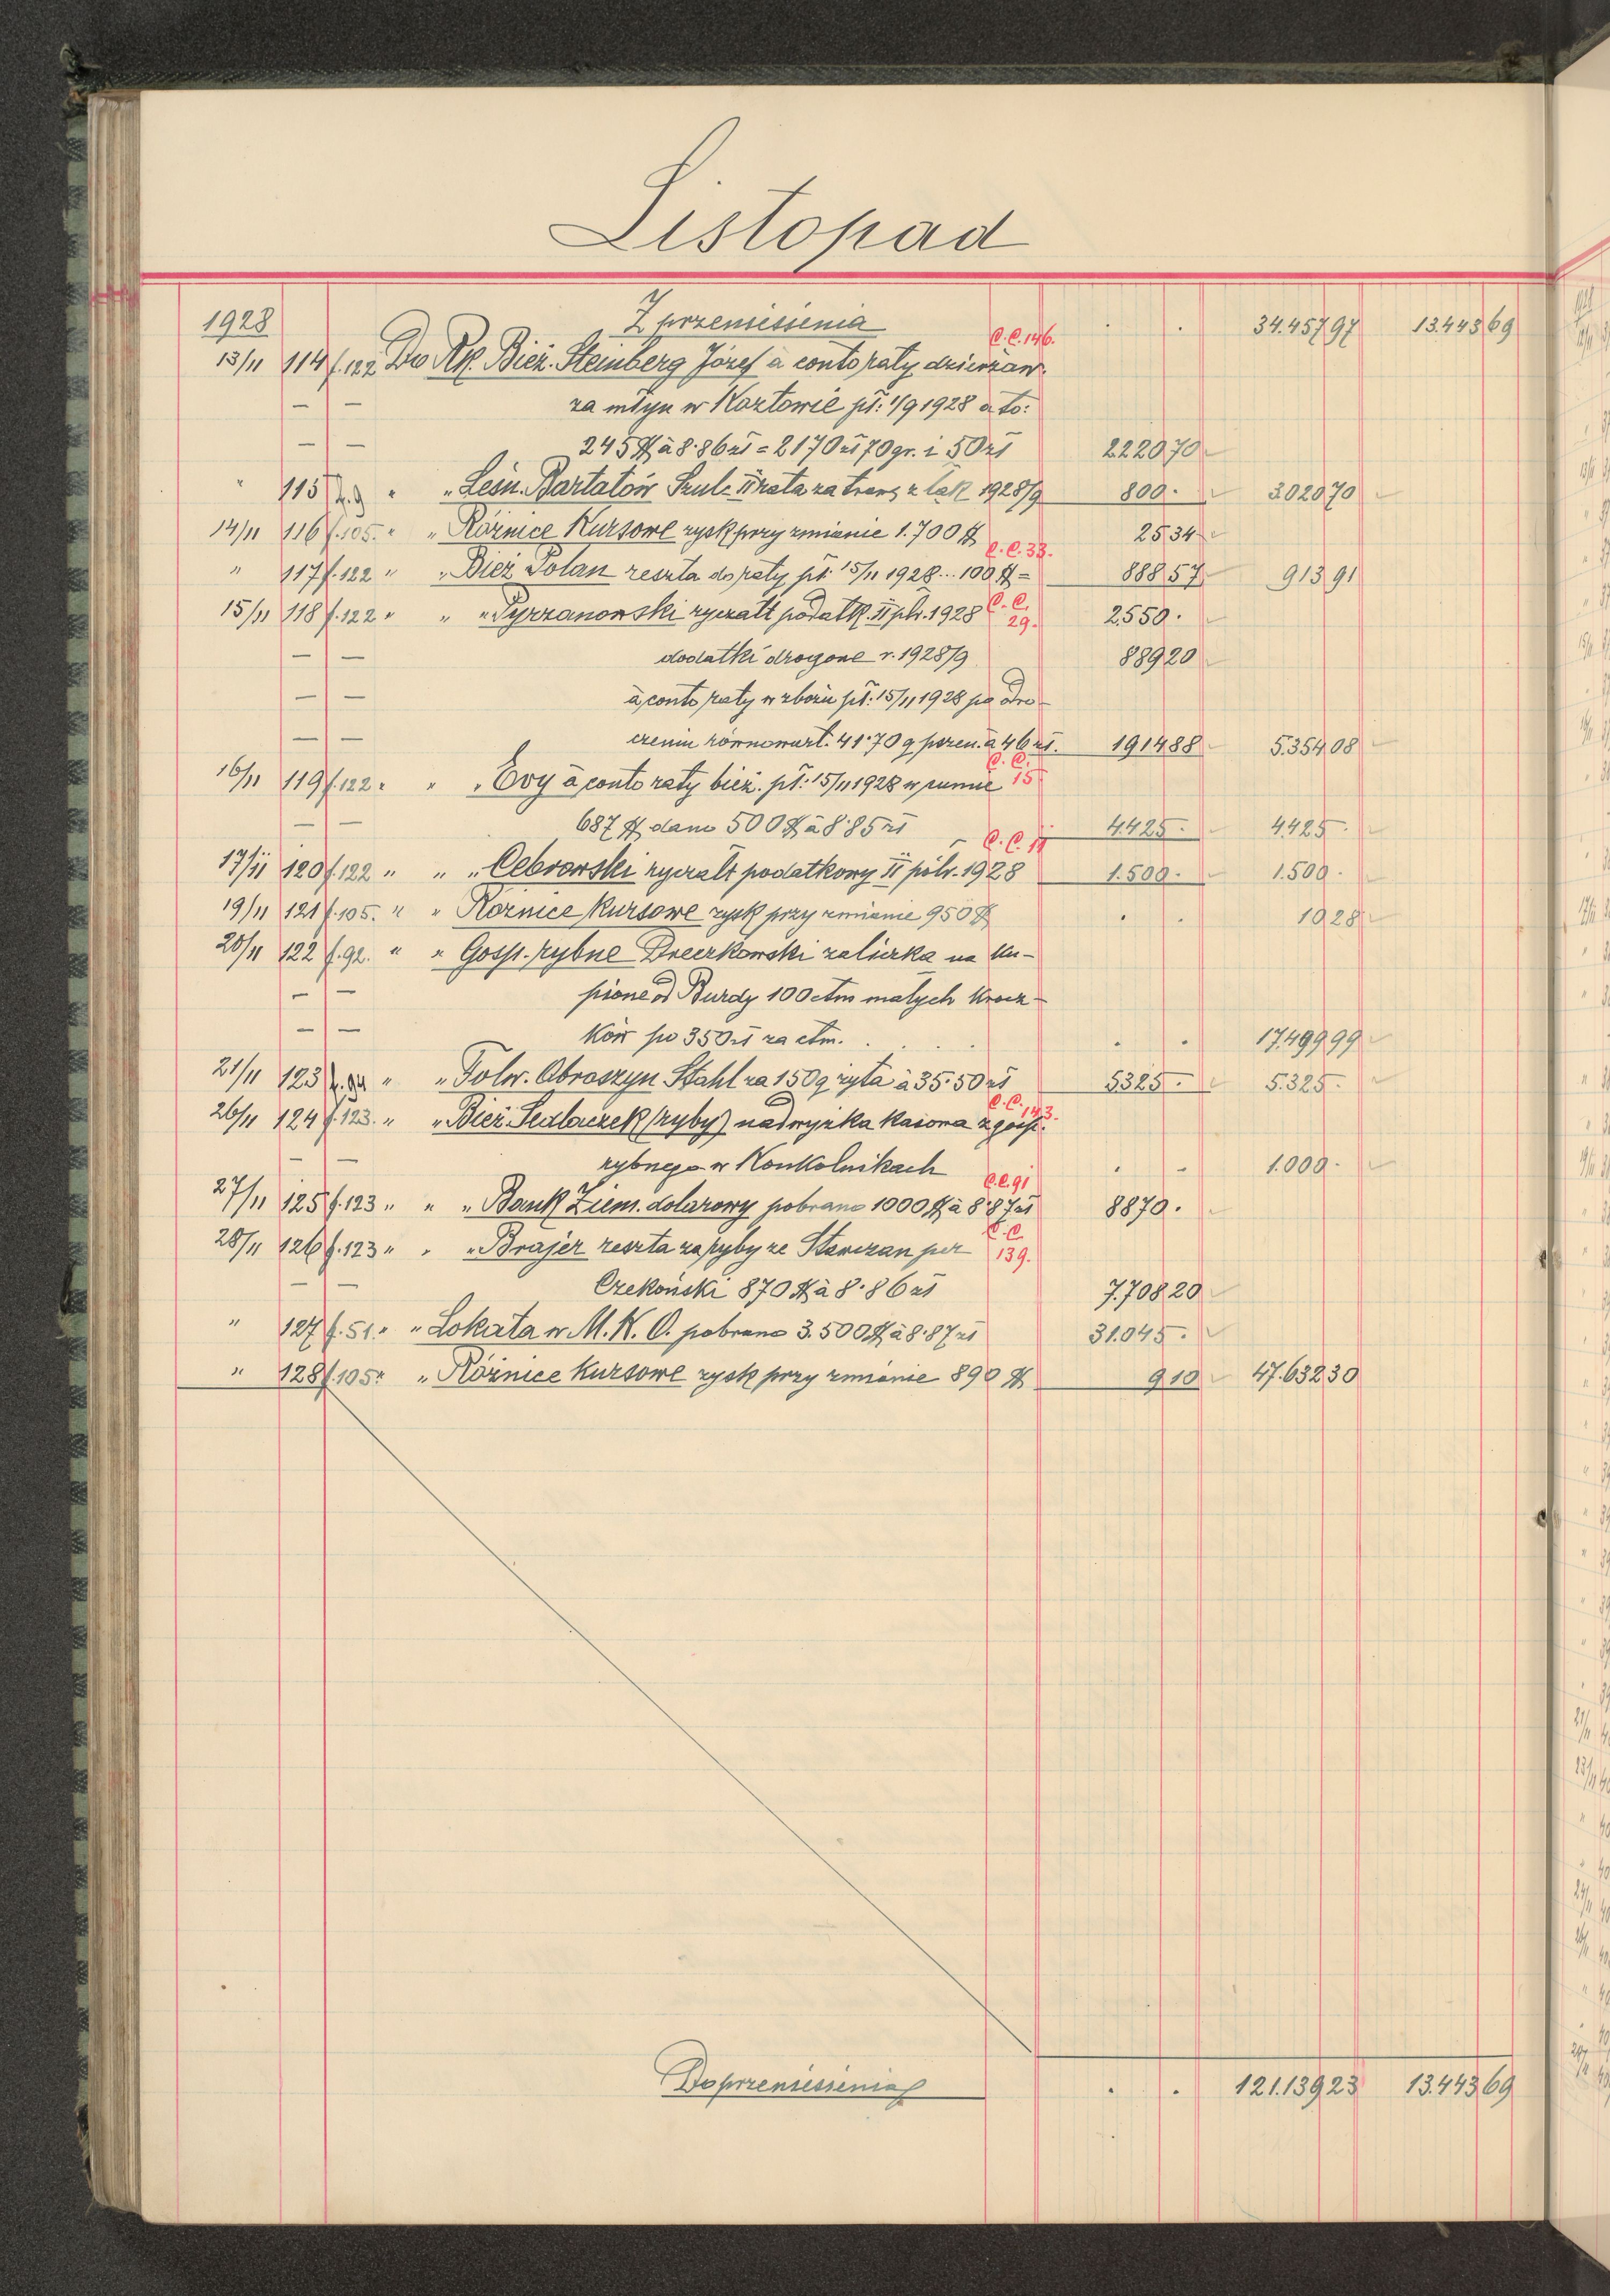 Listopad
1928 Z przeniesienia . . 34.457 97 13.443 69
C.C. 146.
13/11 114 f.122 Do Rk. Bież. Steinberg Józef à conto raty dzierżaw.
— — za młyn w Kozłowie pł: 1/9 1928 a to:
— — 245 $ à 8·86 zł = 2170 zł 70 gr. i 50 zł 2220 70
" 115 f.9 " " Leśn. Bartatów Szulc II rata za 1928/9 800 · 3020 70
14/11 116 f.105. " " Różnice Kursowe zysk przy zmianie 1.700 $ 25 34
C.C. 33.
" 117 f.122 " " Bież Polan reszta do raty pł. 15/11 1928 ... 100 $ = 888 57 913 91
15/11 118 f.122 " " " Pyrzanowski ryczałt podatk. II płr. 1928 C.C. 29. 2550 ·
— — dodatki drogowe r. 1928/9 889 20
— — à conto raty w zbożu pł: 15/11 1928 po
— — równowart. 41·70 q pszen. à 46 zł. 1914 88 5.354 08
C.C. 15
16/11 119 f.122 " " " Evy à conto raty bież. pł: 15/11 1928 w sumie
— — 687 $ dano 500 $ à 8·85 zł 4.425 · 4.425 ·
C.C. 11
17/11 120 f.122 " " " Cebrowski ryczałt podatkowy II półr. 1928 1.500 · 1.500 ·
19/11 121 f.105. " " Różnice Kursowe zysk przy zmianie 950 $ . . 10 28
20/11 122 f.92. " " Gosp. rybne Dreczkowski zaliczka na ku-
— — pione od Burdy 100 ctm małych krocz-
— — ków po 350 zł za ctm. . . . . 17.499 99
21/11 123 f.94 " " Folw. Obroszyn Stahl za 150 q żyta à 35·50 zł 5325 · 5.325 ·
C.C. 143.
26/11 124 f.123. " " Bież. Sedlaczek (ryby) nadwyżka kasowa z gosp.
— — rybnego w Konkolnikach . . 1.000 ·
C.C. 91
27/11 125 f.123 " " " Bank Ziem. dolarowy pobrano 1000 $ à 8·87 zł 8870 ·
28/11 126 f.123 " " " Brajer reszta za ryby ze Starczan per C.C. 139.
— — Czekoński 870 $ à 8·86 zł 7.708 20
" 127 f.51. " " Lokata w M.K.O. pobrano 3.500 $ à 8·87 zł 31.045 ·
" 128 f.105 " " Różnice Kursowe zysk przy zmianie 890 $ 9 10 47.632 30
Do przeniesienia . . 121.139 23 13.443 69